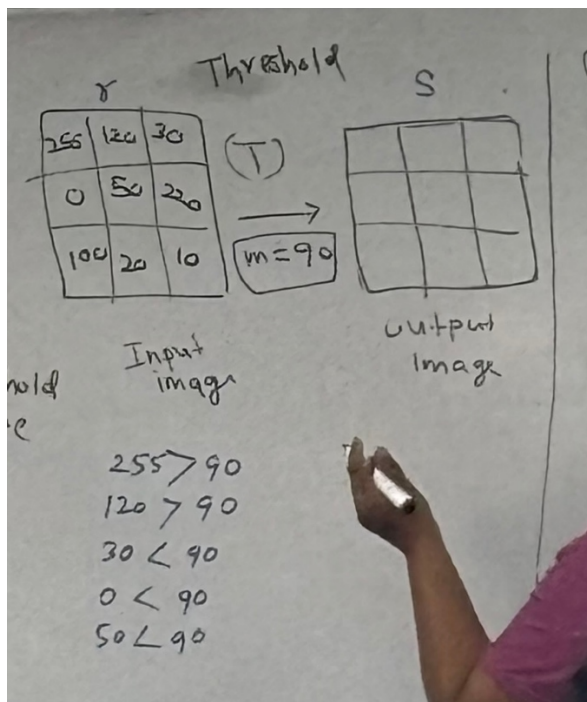 Threshold
r
S
255 120 30
0 50 220
100 20 10
(T)
m=90
Input
image
output
Image
255 > 90
120 > 90
30 < 90
0 < 90
50 < 90